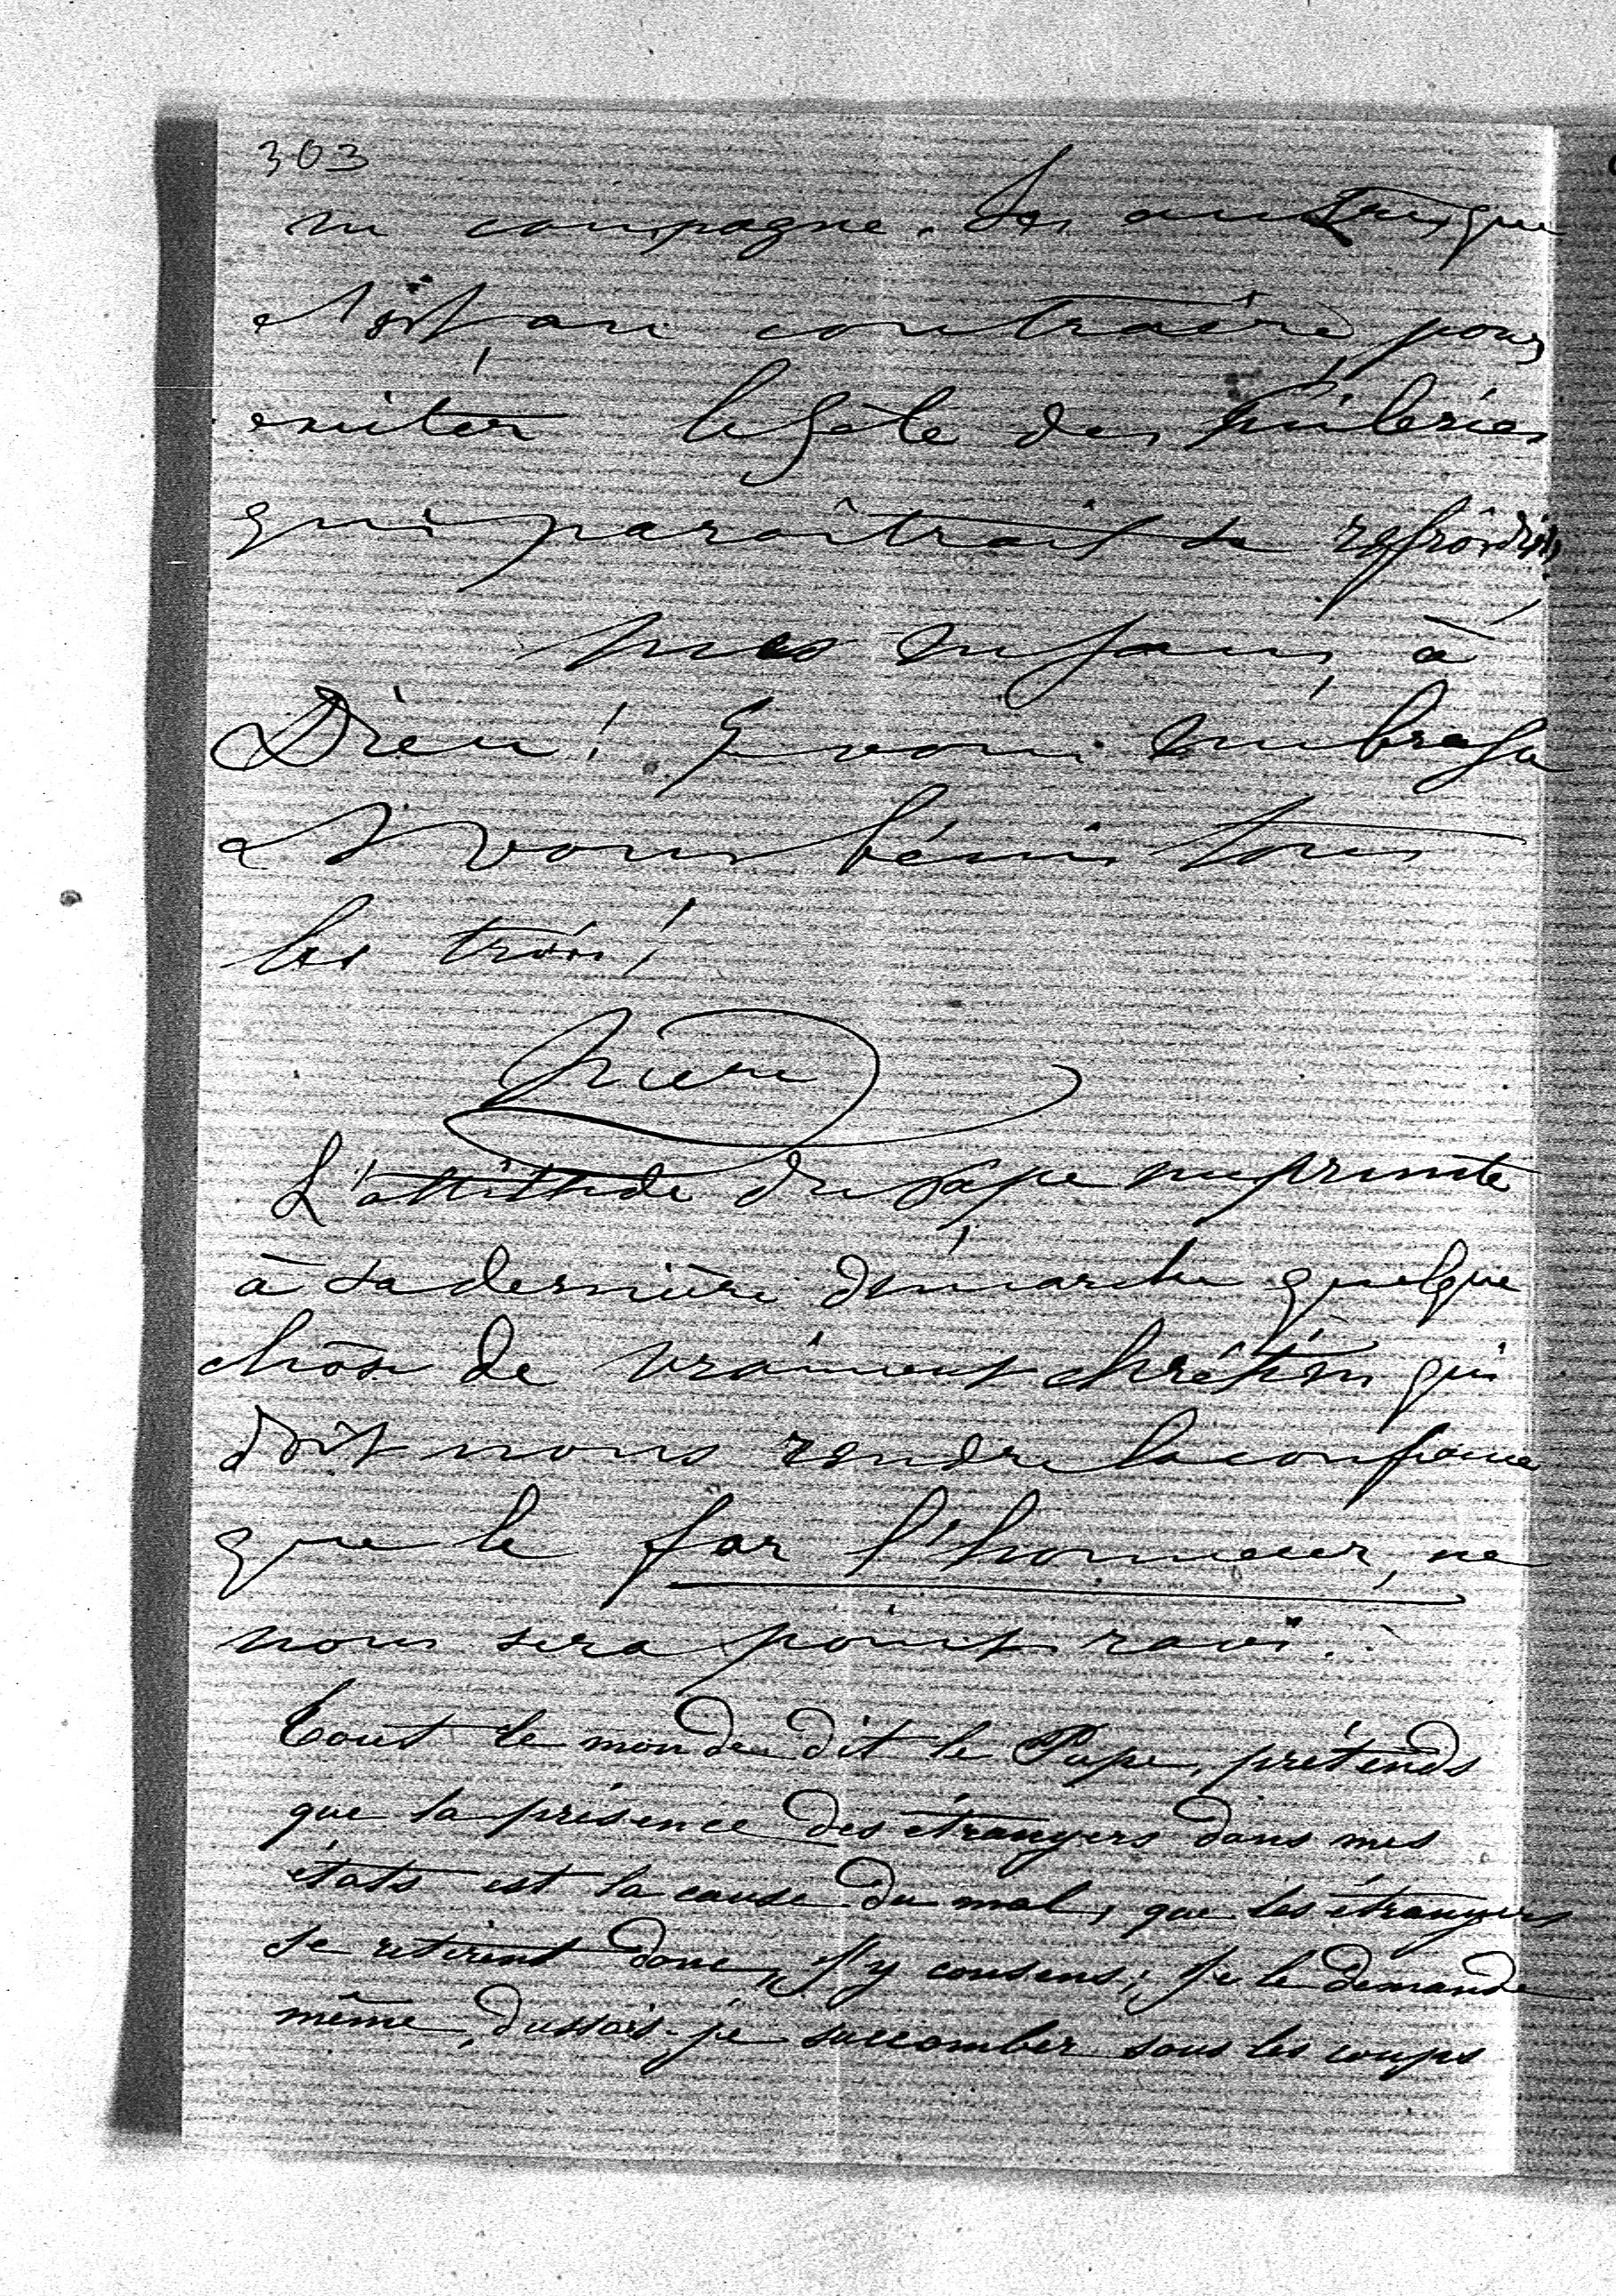 303
en campagne. Les autres, que
c'est au contraire, pour
exciter le zèle des Tuileries
qui paraîtrait se refroidir,
mes enfans, à
Dieu! Je vous embrasse
et vous bénis tous
les trois!
L'attitude du Pape
à sa dernière démarche quelque
chose de vraiment chrétien qui
doit nous rendre la confiance
que le for l'honneur, ne
nous sera point ravi.
Tout le monde dit le Pape, prétends
que la présence des étrangers dans mes
états est la cause du mal, que les étrangers
se retirent donc, j'y consens; je le demande
même, dussais-je succomber sous les coups